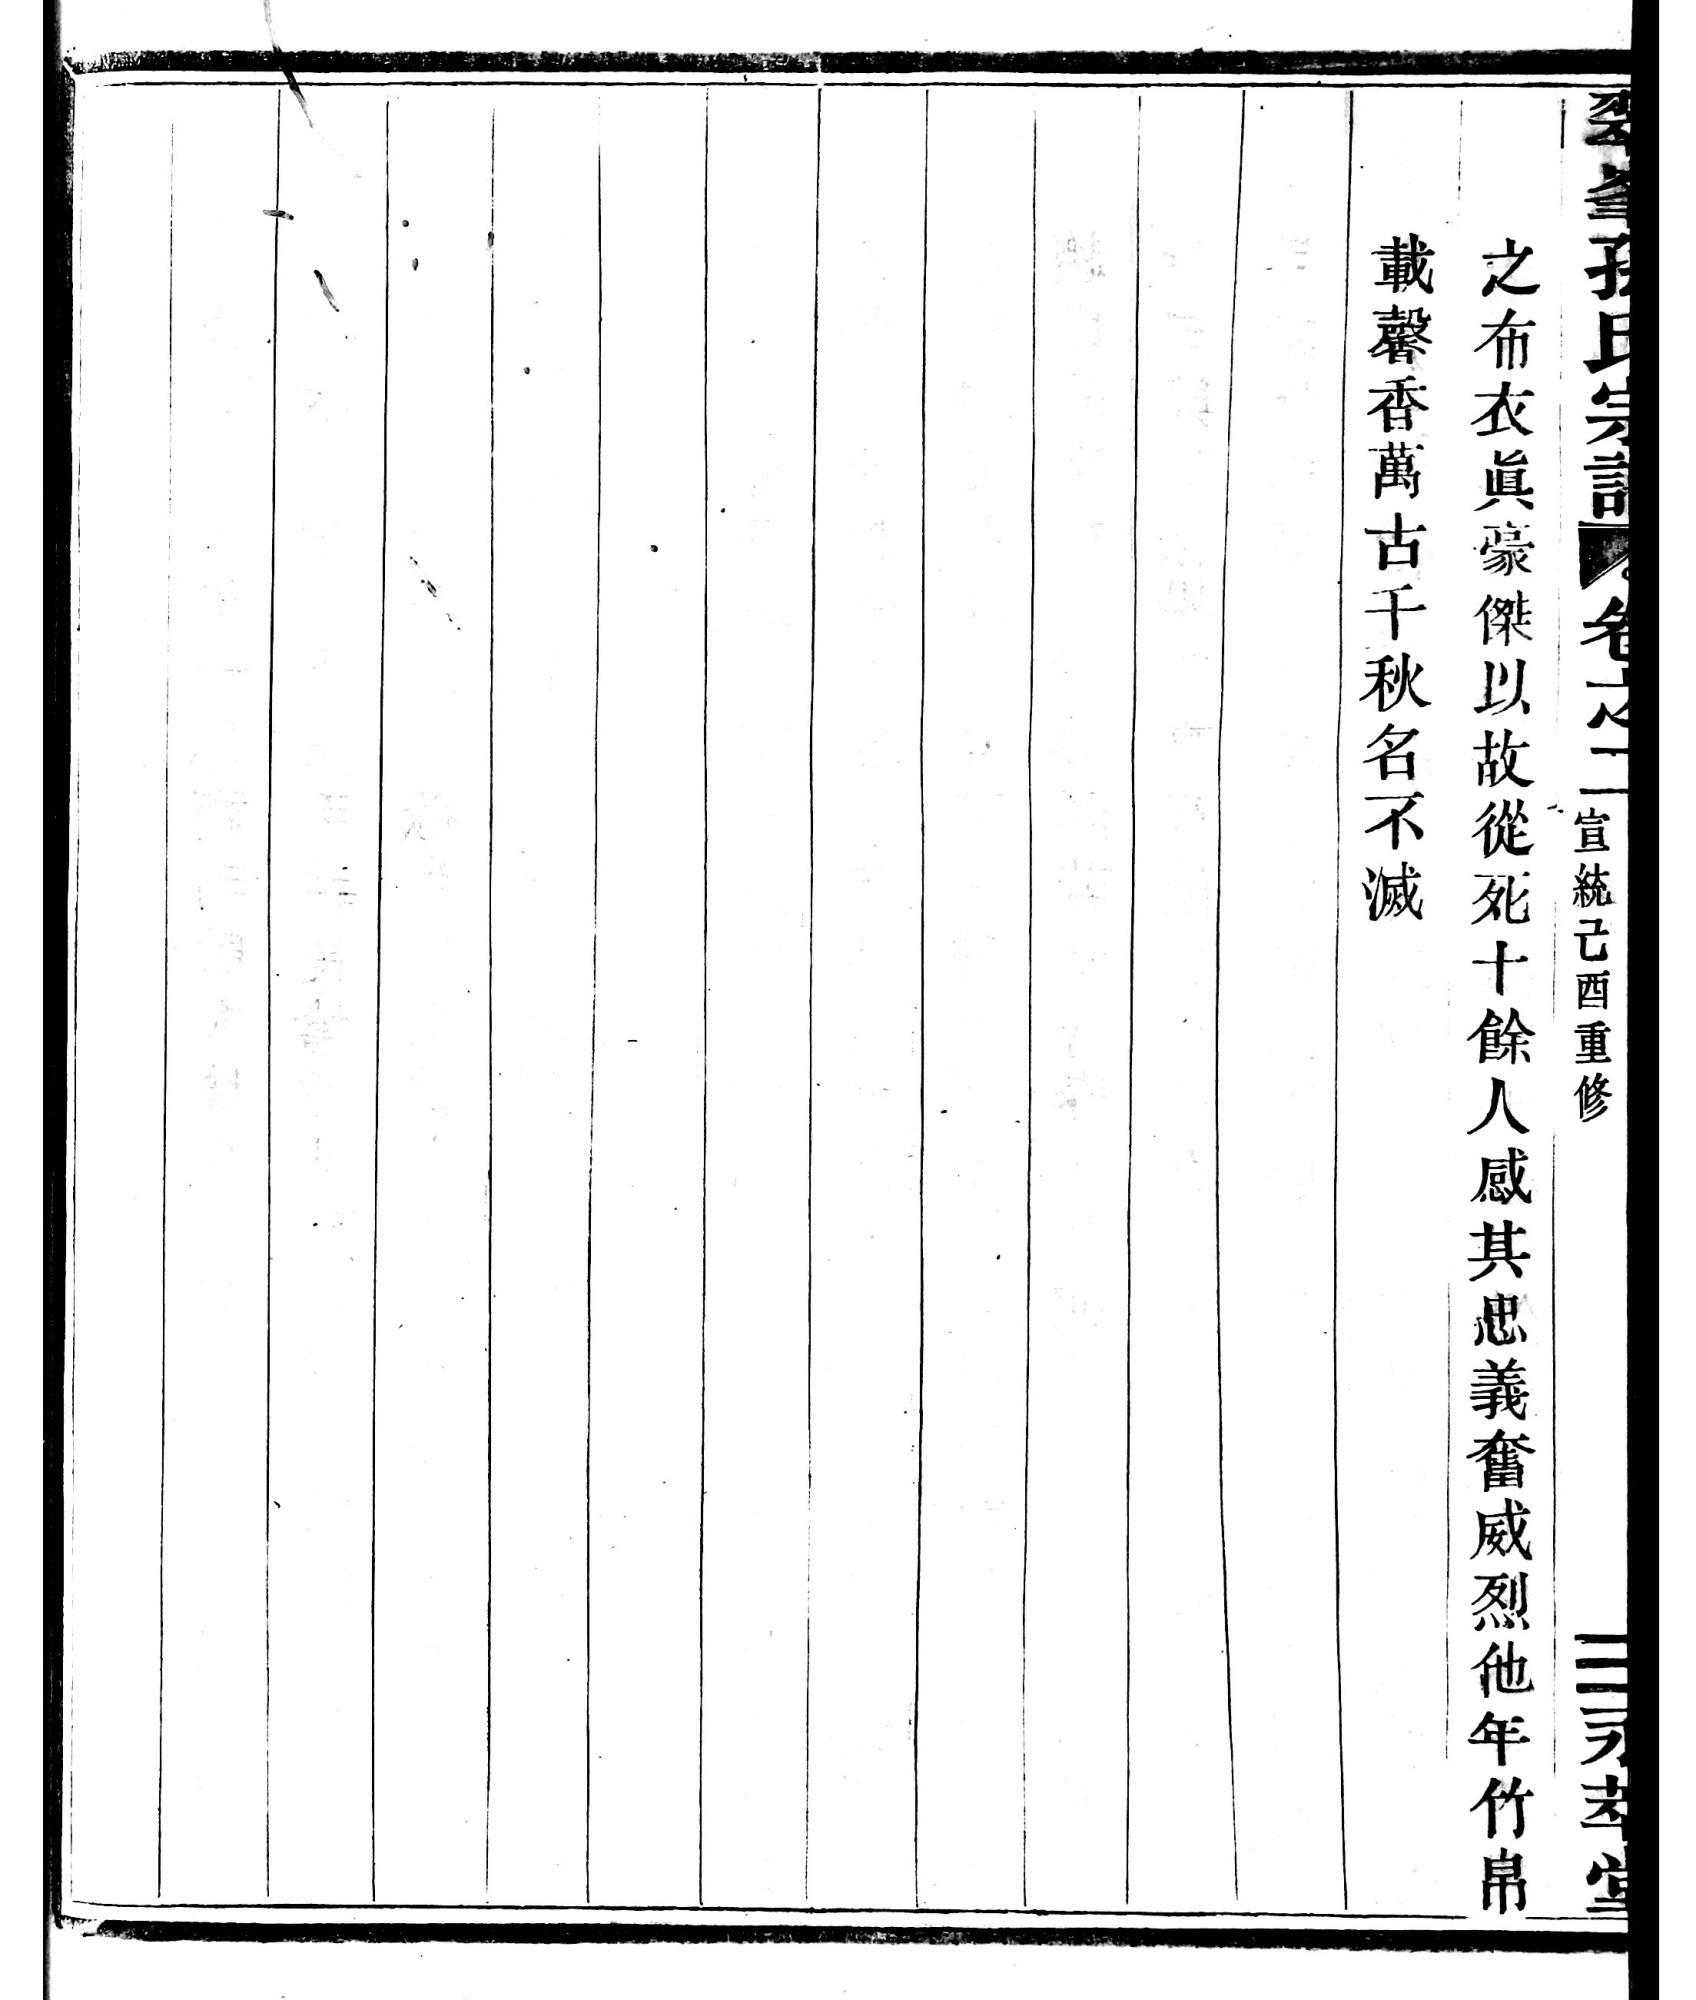 孫氏宗譜
卷之二
宣統己酉重修
二
永萃堂
之布衣眞豪傑以故從死十餘人感其忠義奮威烈他年竹帛
載馨香萬古千秋名不滅